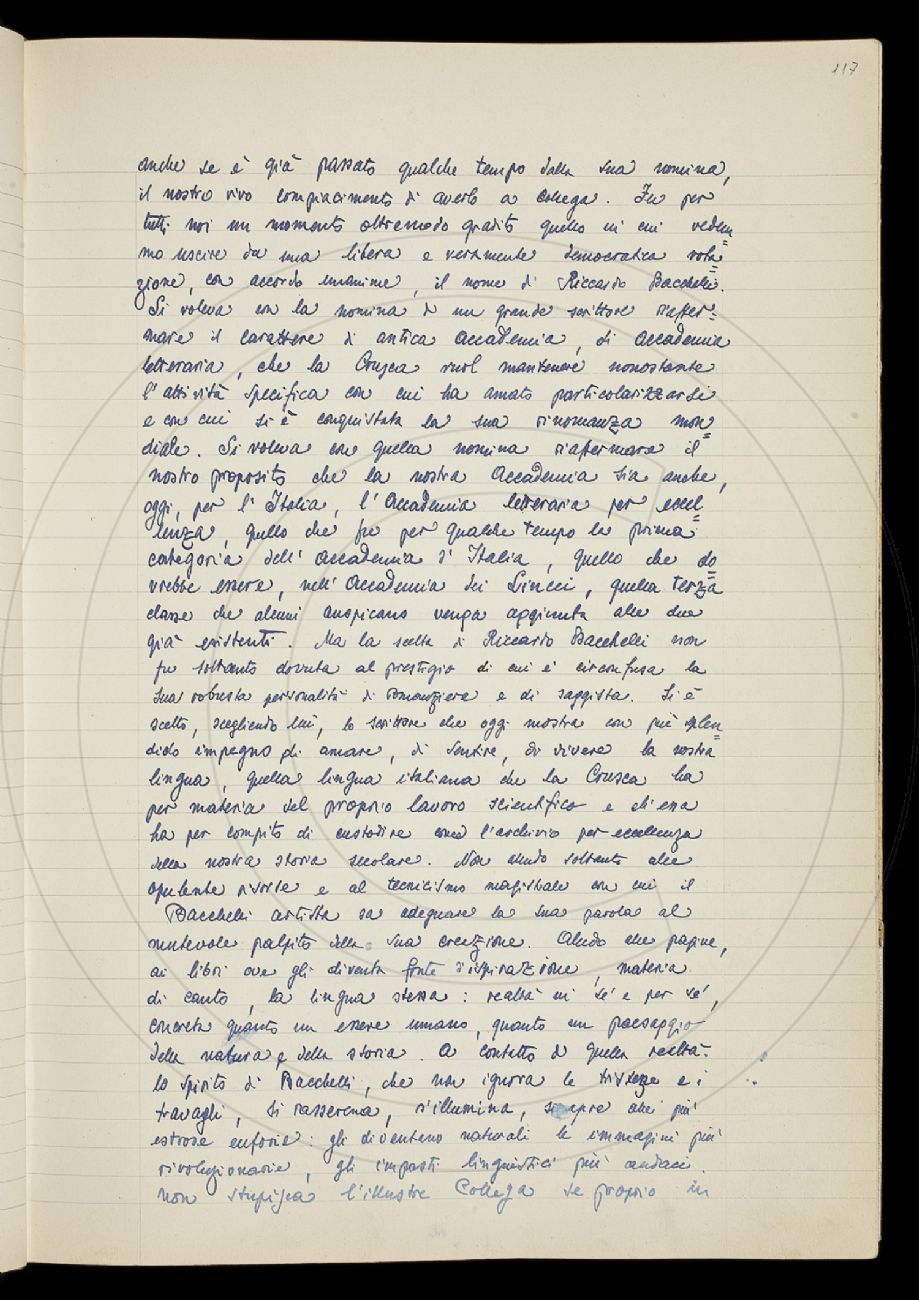 117
anche se è già passato qualche tempo dalla sua nomina,
il nostro vivo compiacimento di averlo a collega. Fu per
tutti noi un momento oltremodo gradito quello in cui vedem=
mo uscire da una libera e veramente democratica vota=
zione, con accordo unanime, il nome di Riccardo Bacchelli.
Si voleva con la nomina di un grande scrittore riaffer=
mare il carattere di antica Accademia, di Accademia
letteraria, che la Crusca vuol mantenere nonostante
l'attività specifica con cui ha amato particolarizzarsi
e con cui si è conquistata la sua rinomanza mon=
diale. Si voleva con quella nomina riaffermare il
nostro proposito che la nostra Accademia sia anche,
oggi, per l'Italia, l'Accademia letteraria per eccel=
lenza, quello che fu per qualche tempo la prima
categoria dell'Accademia d'Italia, quello che do=
vrebbe essere, nell'Accademia dei Lincei, quella terza
classe che alcuni auspicano venga aggiunta alle due
già esistenti. Ma la scelta di Riccardo Bacchelli non
fu soltanto dovuta al prestigio di cui è circonfusa la
sua robusta personalità di romanziere e di saggista. Si è
scelto, scegliendo lui, lo scrittore che oggi mostra con più splen=
dido impegno di amare, di sentire, di vivere la nostra
lingua, quella lingua italiana che la Crusca ha
per materia del proprio lavoro scientifico e ch'essa
ha per compito di custodire come l'archivio per eccellenza
della nostra storia secolare. Non alludo soltanto alle
opulente risorse e al tecnicismo magistrale con cui il
Bacchelli artista sa adeguare la sua parola al
mutevole palpito della sua creazione. Alludo alle pagine,
ai libri ove gli diventa fonte d'ispirazione, materia
di canto, la lingua stessa: realtà in sé e per sé,
concreta quanto un essere umano, quanto un paesaggio
della natura e della storia. A contatto di quella realtà
lo spirito di Bacchelli, che non ignora le tristezze e i
travagli, si rasserena, s'illumina, si apre alle più
estrose euforie: gli diventano naturali le immagini più
rivoluzionarie, gli impasti linguistici più audaci.
Non stupisca l'illustre Collega se proprio in